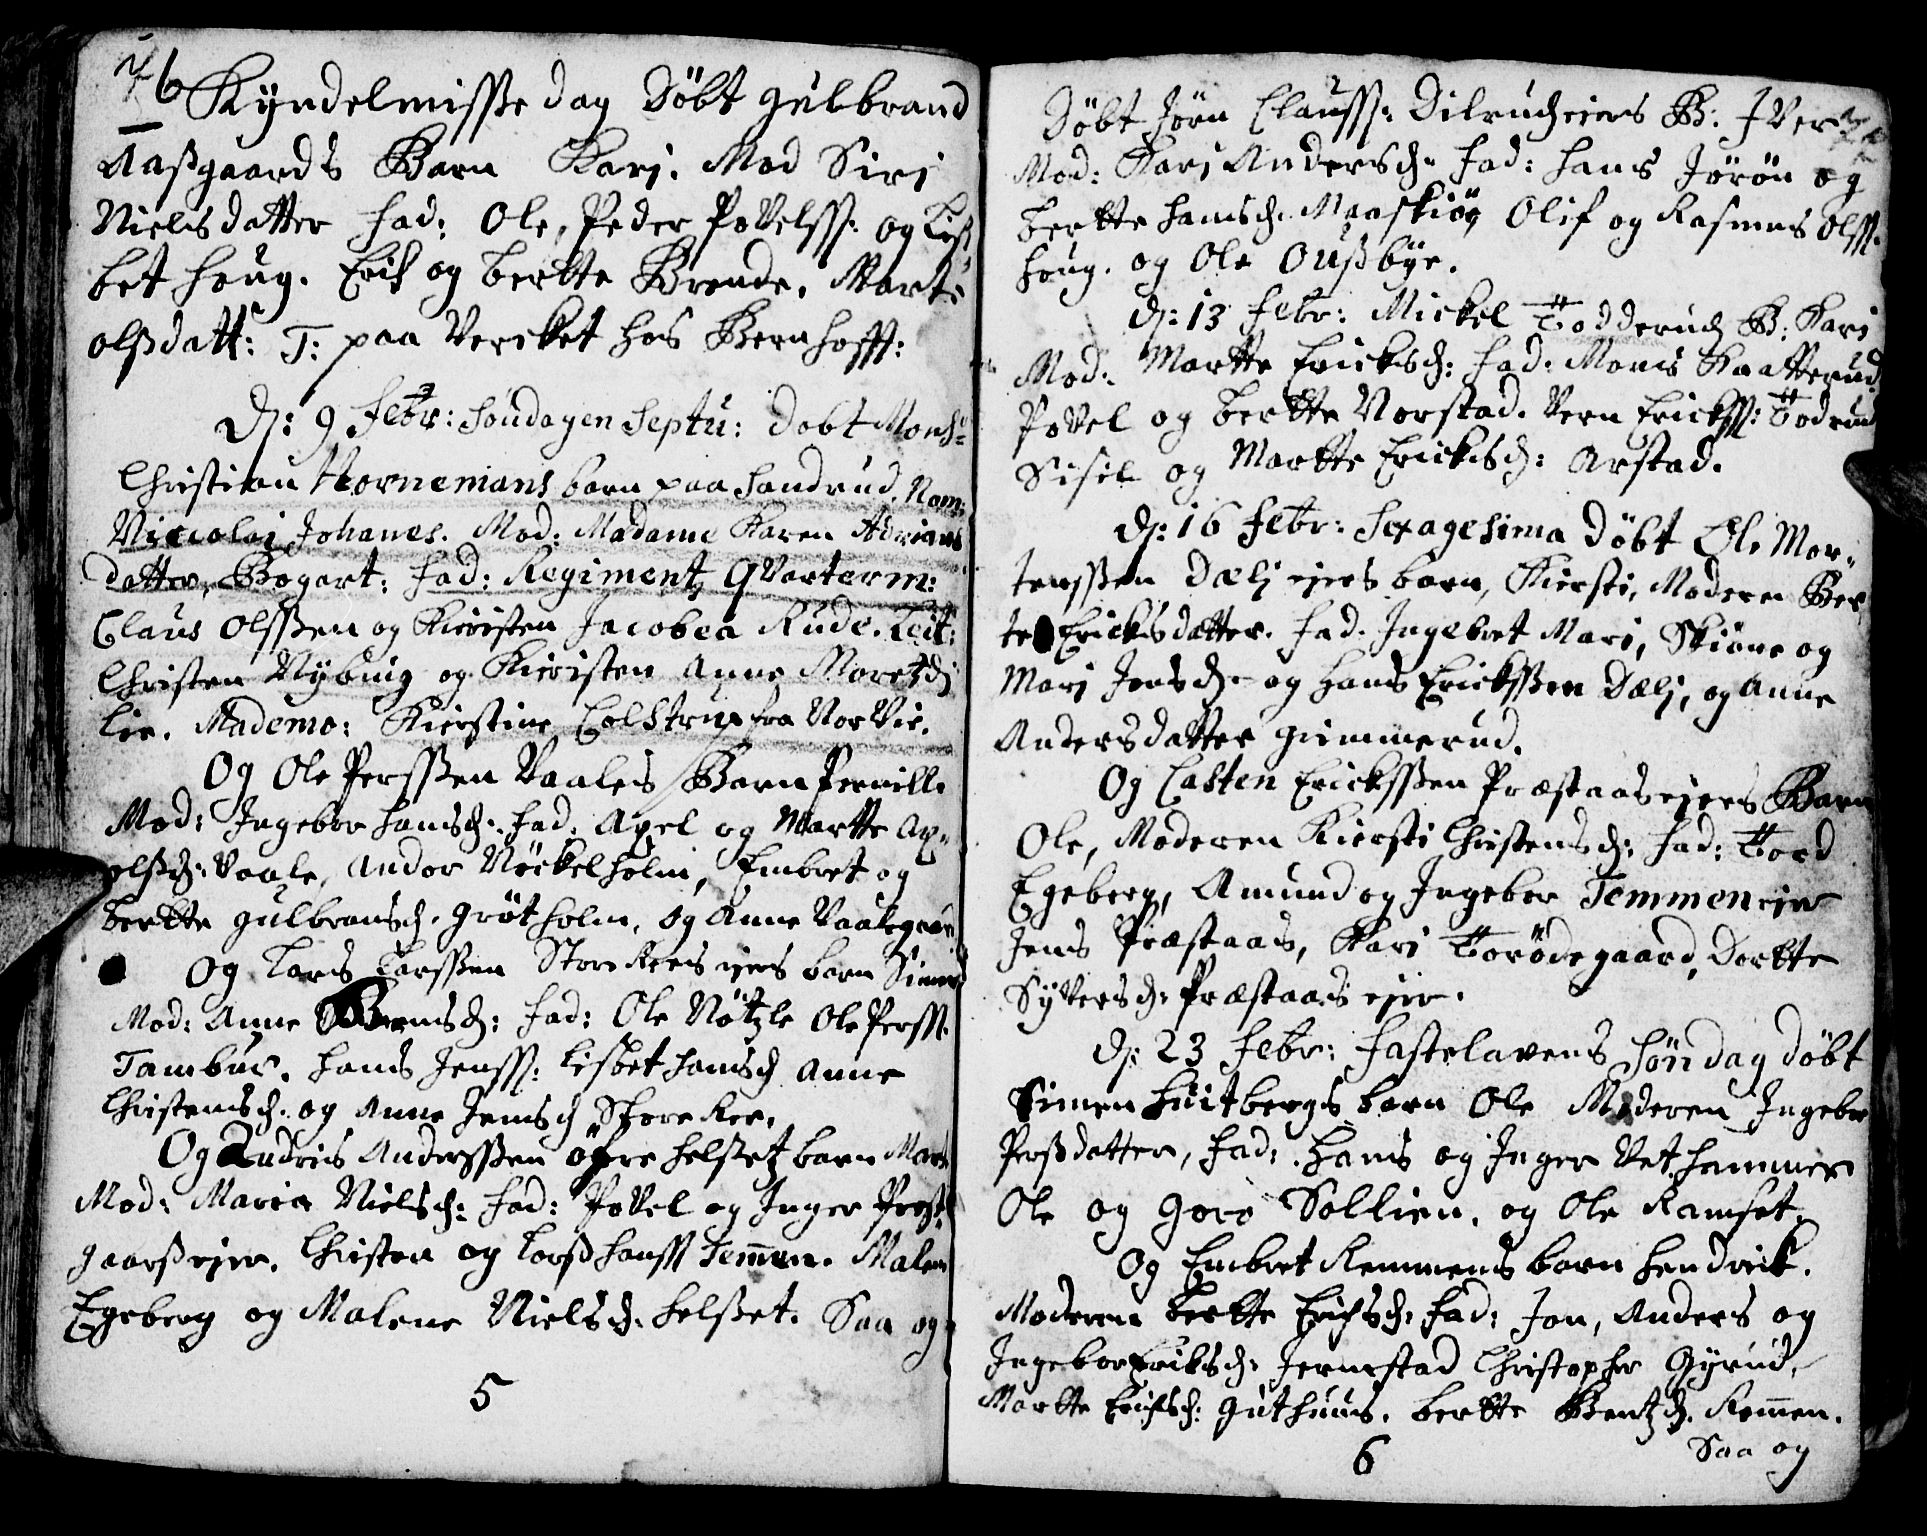 76
Kyndelmisse dag Döbt Gulbrand
Aaßgaards Barn Kari. Mod Siri
Nielsdatter Fad: Ole, Peder Povelss: og Lis-
bet Houg. Erich og Bertte Brende. Marte
olßdatt: T: paa Vercket hos Bernhofft:
D: 9 Febr: Söndagen Septu: Döbt Monsr
Christian Hornemans barn paa Sandrud. Nom:
Niccolai Johanes. Mod: Madame Karen Adrians
datter, Bogart: Fad: Regimentz Qvarterm:
Claus Olssen og Kiersten Jacobea Rude. Leit:
Christen Nyborg og Kiersten Anne Moretzd
Lie. Mademo: Kierstine Colstrup fra Norvie.
Og Ole Perssen Vaales Barn Pernille
Mod: Ingebor Hansd: Fad: Axel og Martte Ax-
elßd: Vaale, Andor Nöckelholm, Embret og
Bertte Gulbransd. Grötholm, og Anne Vaalegaar
Og Lars Larssen Store Rees ejes barn Simen
Mod: Anne d: Fad: Ole Nötzle Ole Perss:
Tambur. Hans Jenss: Lisbet Hansd Anne
Christensd. og Anne Jensd Store Ree.
Og Andris Anderssen öfre Helsetz barn Mari
Mod: Maria Nielsd: Fad: Povel og Inger Prest-
gaardsejer. Christen og Lorß Hanss Temmen. Malene
Egeberg og Malene Nielsd. Helset. Saa og
5
Döbt Jörn Clauss: Dilrudejers B: Iver
Mod: Kari Andersd. Fad: Hans Jörön og
Bertte Hansd. Maaskiög Olif og Rasmus Olss.
Houg. og Ole Oußbye.
D: 13 Febr: Mickel Todderud B: Kari
Mod: Martte Ericksd: Fad: Mons Kaatterud
Povel og Bertte Norstad. Vern Erickss: Todrud
Sisil og Martte Ericksd: Arstad.
D: 16 Febr: Sexagesima Döbt Ole Mor-
tenssen Dælj ejes barn, Kiersti, Moderen Ber
te Ericksdatter. Fad. Ingebret Mari, Skiöne og
Mari Jonsd. og Hans Erickssen Dælj, og Anne
Andersdatter Gimmerud.
Og Casten Erickssen Præstaasejers Barn
Ole, Moderen Kiersti Christensd: Fad: Tord
Egeberg, Amund og Ingebor Temmenejer
Jens Præstaas, Kari Torödegaard, Dortte
Syversd: Præstaas ejer.
D: 23 Febr: Fastelavens Söndag döbt
Simen Huitbergs barn Ole Moderen Ingebor
Persdatter, Fad: Hans og Inger Vethammer
Ole og Goro Sollien, og Ole Ramset.
Og Embret Remmens barn Hendrik.
Moderen Bertte Erichsd: Fad: Jon, Anders og
Ingebor Eriksd: Jernstad Christopher Gyrud,
Martte Erichsd: Guthuus. Bertte Bentzd. Remmen.
6
Saa og